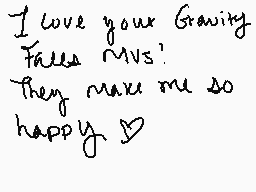 I love your Gravity
Falls MVs!
They make me so
happy ♡